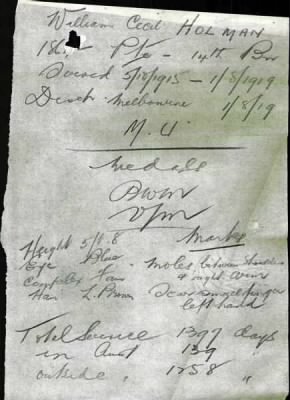 William Cecil HOLMAN
Pte - 14th Bn
Served 5/10/1915 - 1/8/1919
Disch Melbourne 1/8/19
M. U.
Medals
BWM
VM
Marks
Height 5/
Eye Blue - moles between shoulders
Complex Fair & right arm
Hair L. Brown Scar small finger
left hand
Total Service 1397 days
in Aust 139 "
outside " 1258 "